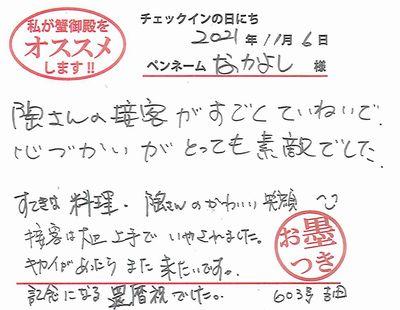 私が蟹御殿を
オススメ
します!!
チェックインの日にち
2021年11月6日
ペンネーム なかよし 様
陶さんの接客がすごくていねいで、
心づかいがとっても素敵でした。
すてきな料理、陶さんのかわいい笑顔
接客は 上手で いやされました。
キカイがあったら また 来たいです。
記念になる還暦祝でした。
603号 吉田
お墨
つき